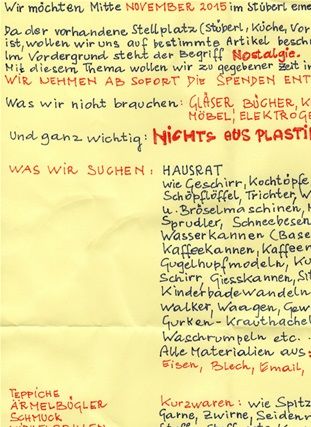 Wir möchten Mitte NOVEMBER 2015 im Stüberl eine
Da der vorhandene Stellplatz (Stüberl, Küche, Vor
ist, wollen wir uns auf bestimmte Artikel besch
Im Vordergrund steht der Begriff Nostalgie.
Mit diesem Thema wollen wir zu gegebener Zeit in
WIR NEHMEN AB SOFORT DIE SPENDEN ENT
Was wir nicht brauchen: GLÄSER BÜCHER, K
MÖBEL, ELEKTROGE
Und ganz wichtig: NICHTS AUS PLASTI
WAS WIR SUCHEN: HAUSRAT
wie Geschirr, Kochtöpfe
Schöpflöffel, Trichter, W
u. Bröselmaschinen,
Sprudler, Schneebesen
Wasserkannen (Base
Kaffeekannen, Kaffeem
Gugelhupfmodeln, Ku
Schirr, Giesskannen, Sit
Kinderbadewandeln
Walker, Waagen, Gew
Gurken- Krauthachel
Waschrumpeln etc...
Alle Materialien aus:
Eisen, Blech, Email,
TEPPICHE
ÄRMELBÜGLER
SCHMUCK
Kurzwaren: wie Spitz
Garne, Zwirne, Seiden